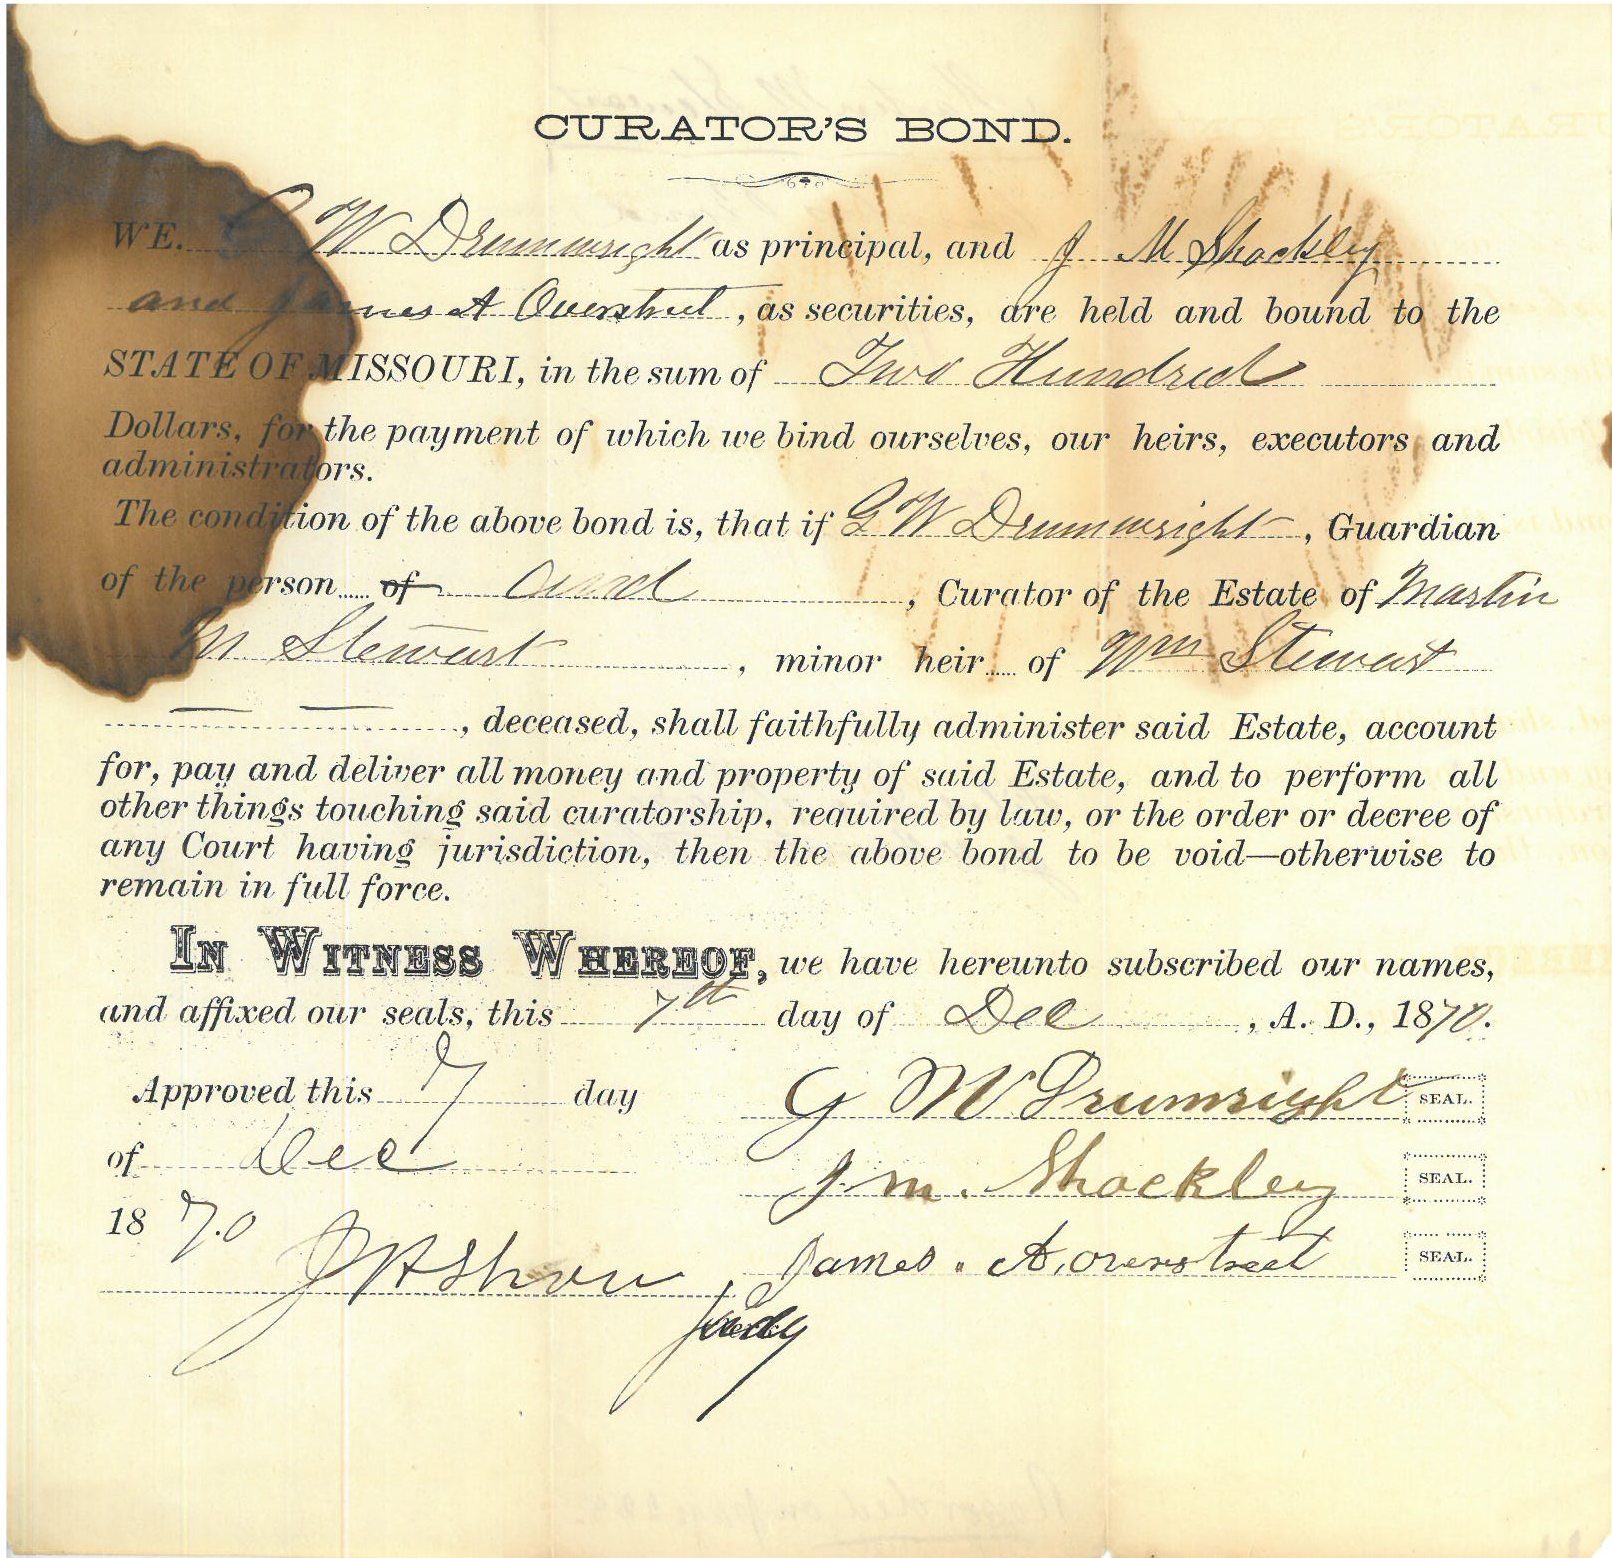 CURATOR'S BOND.
WE. G W Drumwright as principal, and J M Shockley
and James A Overstreet, as securities, are held and bound to the
STATE OF MISSOURI, in the sum of Two Hundred
Dollars, for the payment of which we bind ourselves, our heirs, executors and
administrators.
The condition of the above bond is, that if G W Drumwright, Guardian
of the person of and, Curator of the Estate of Martin
M Stewart, minor heir of Wm Stewart
— —, deceased, shall faithfully administer said Estate, account
for, pay and deliver all money and property of said Estate, and to perform all
other things touching said curatorship, required by law, or the order or decree of
any Court having jurisdiction, then the above bond to be void—otherwise to
remain in full force.
IN WITNESS WHEREOF, we have hereunto subscribed our names,
and affixed our seals, this 7th day of Dec, A. D., 1870.
Approved this 7 day
of Dec
1870
G W Drumright SEAL.
J. M. Shockley SEAL.
James. A. Overstreet SEAL.
Judg